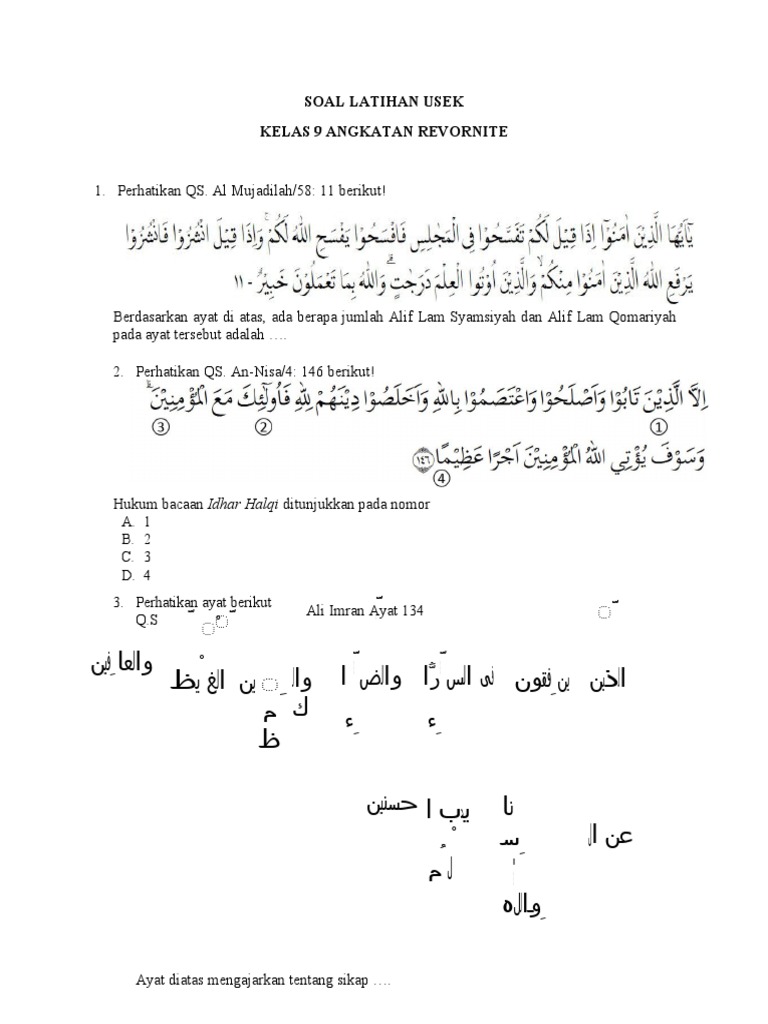 SOAL LATIHAN USEK
KELAS 9 ANGKATAN REVORNITE
1. Perhatikan QS. Al Mujadilah/58: 11 berikut!
يٰٓاَيُّهَا الَّذِيْنَ اٰمَنُوْٓا اِذَا قِيْلَ لَكُمْ تَفَسَّحُوْا فِى الْمَجٰلِسِ فَافْسَحُوْا يَفْسَحِ اللّٰهُ لَكُمْۚ وَاِذَا قِيْلَ انْشُزُوْا فَانْشُزُوْا
يَرْفَعِ اللّٰهُ الَّذِيْنَ اٰمَنُوْا مِنْكُمْۙ وَالَّذِيْنَ اُوْتُوا الْعِلْمَ دَرَجٰتٍۗ وَاللّٰهُ بِمَا تَعْمَلُوْنَ خَبِيْرٌ ١١٠
Berdasarkan ayat di atas, ada berapa jumlah Alif Lam Syamsiyah dan Alif Lam Qomariyah
pada ayat tersebut adalah ….
2. Perhatikan QS. An-Nisa/4: 146 berikut!
اِلَّا الَّذِيْنَ تَابُوْا وَاَصْلَحُوْا وَاعْتَصَمُوْا بِاللّٰهِ وَاَخْلَصُوْا دِيْنَهُمْ لِلّٰهِ فَاُولٰۤىِٕكَ مَعَ الْمُؤْمِنِيْنَۗ
③ ② ①
وَسَوْفَ يُؤْتِى اللّٰهُ الْمُؤْمِنِيْنَ اَجْرًا عَظِيْمًا ١٤٦
④
Hukum bacaan Idhar Halqi ditunjukkan pada nomor
A. 1
B. 2
C. 3
D. 4
3. Perhatikan ayat berikut
Q.S Ali Imran Ayat 134
Ayat diatas mengajarkan tentang sikap ….